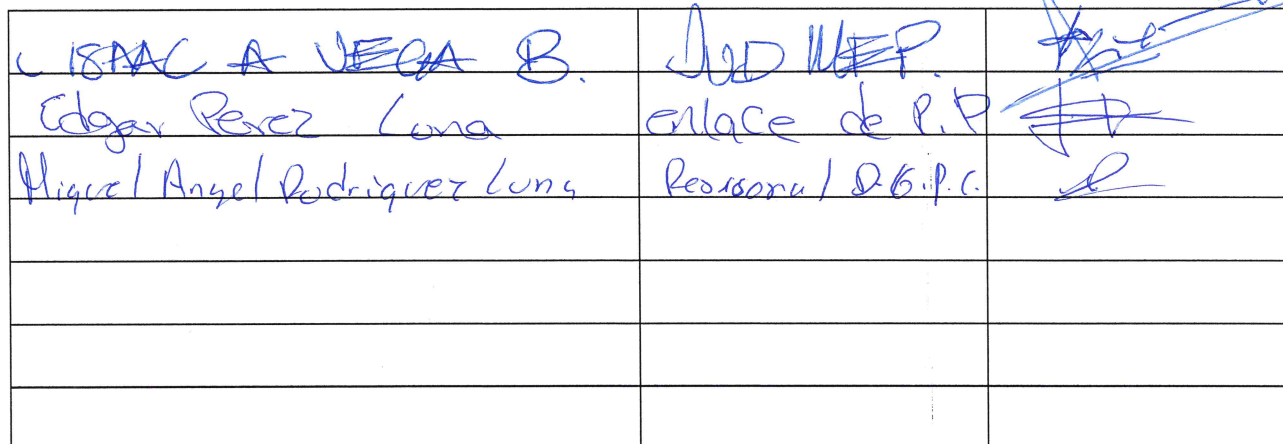 ISAAC A VEGA B. JUD MEP.
Edgar Perez Luna enlace de P.P
Miguel Angel Rodriguez Luna D.G.P.C.